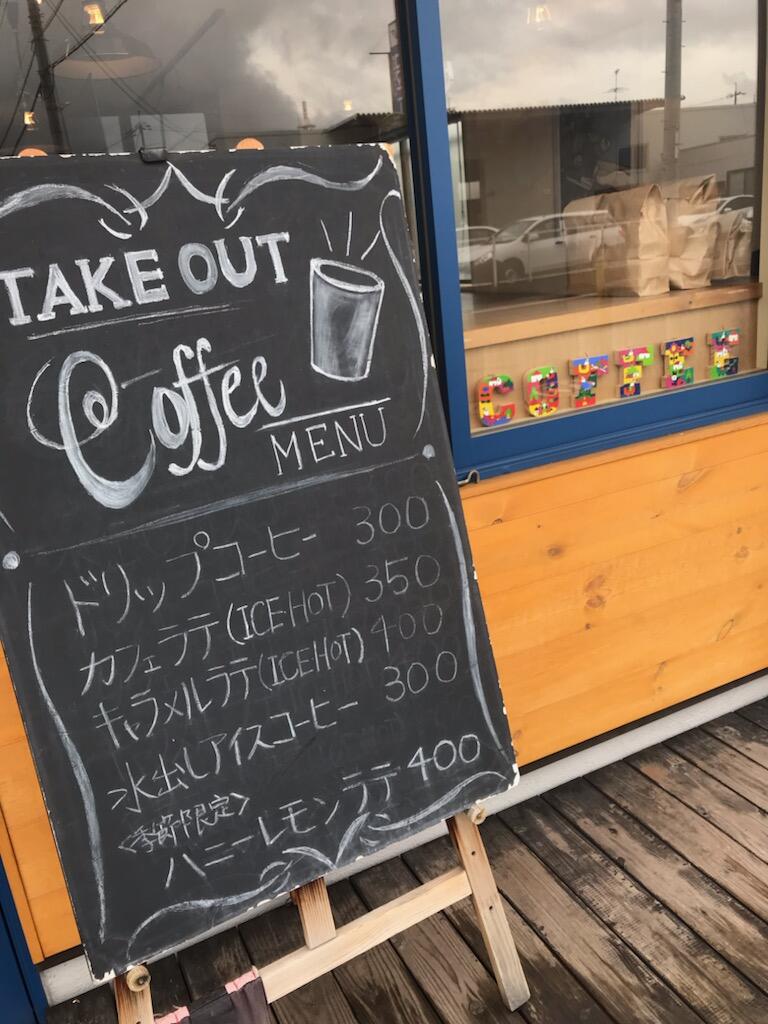 TAKE OUT
Coffee
MENU
ドリップコーヒー 300
カフェラテ(ICE HOT) 350
キャラメルラテ(ICE HOT) 400
水出しアイスコーヒー 300
<季節限定>
ハニーレモンラテ 400